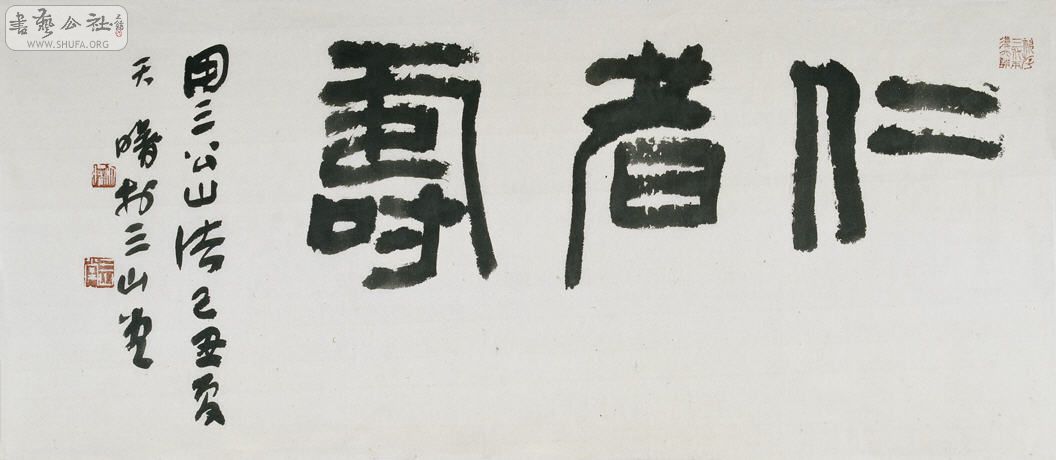 仁者壽
用三公山法己丑夏
天曙於三山堂
書藝公社
WWW.SHUFA.ORG